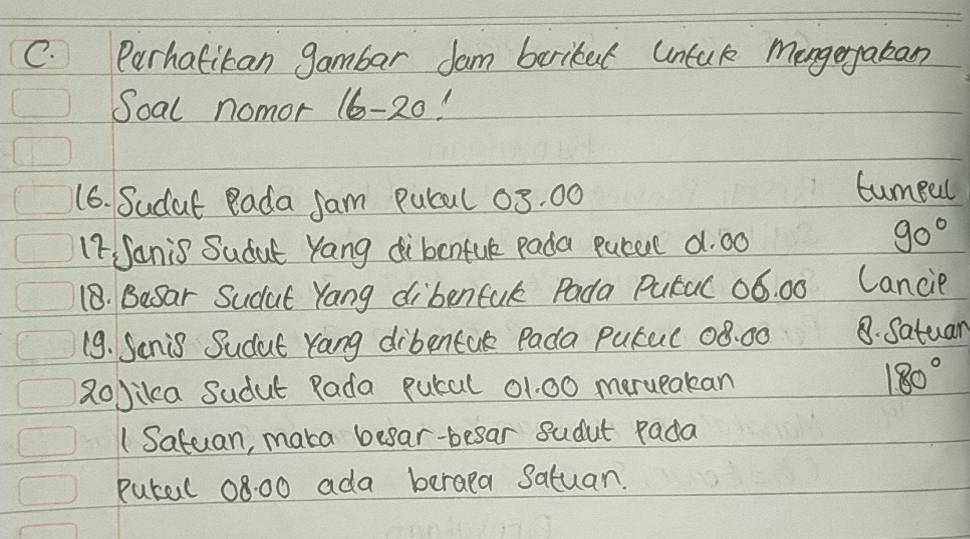 C. Perhatikan gambar Jam berikut untuk Mengerjakan
Soal nomor 16-20!
16. Sudut Pada Jam Pukul 03.00 tumpul
17. Jenis Sudut Yang dibentuk Pada Pukul 01.00 90°
18. Besar Sudut Yang dibentuk Pada Pukul 06.00 Lancip
19. Jenis Sudut Yang dibentuk Pada Pukul 08.00 8. Satuan
20 Jika Sudut Pada Pukul 01.00 merupakan 180°
1 Satuan, maka besar-besar Sudut Pada
Pukul 08.00 ada berapa Satuan.